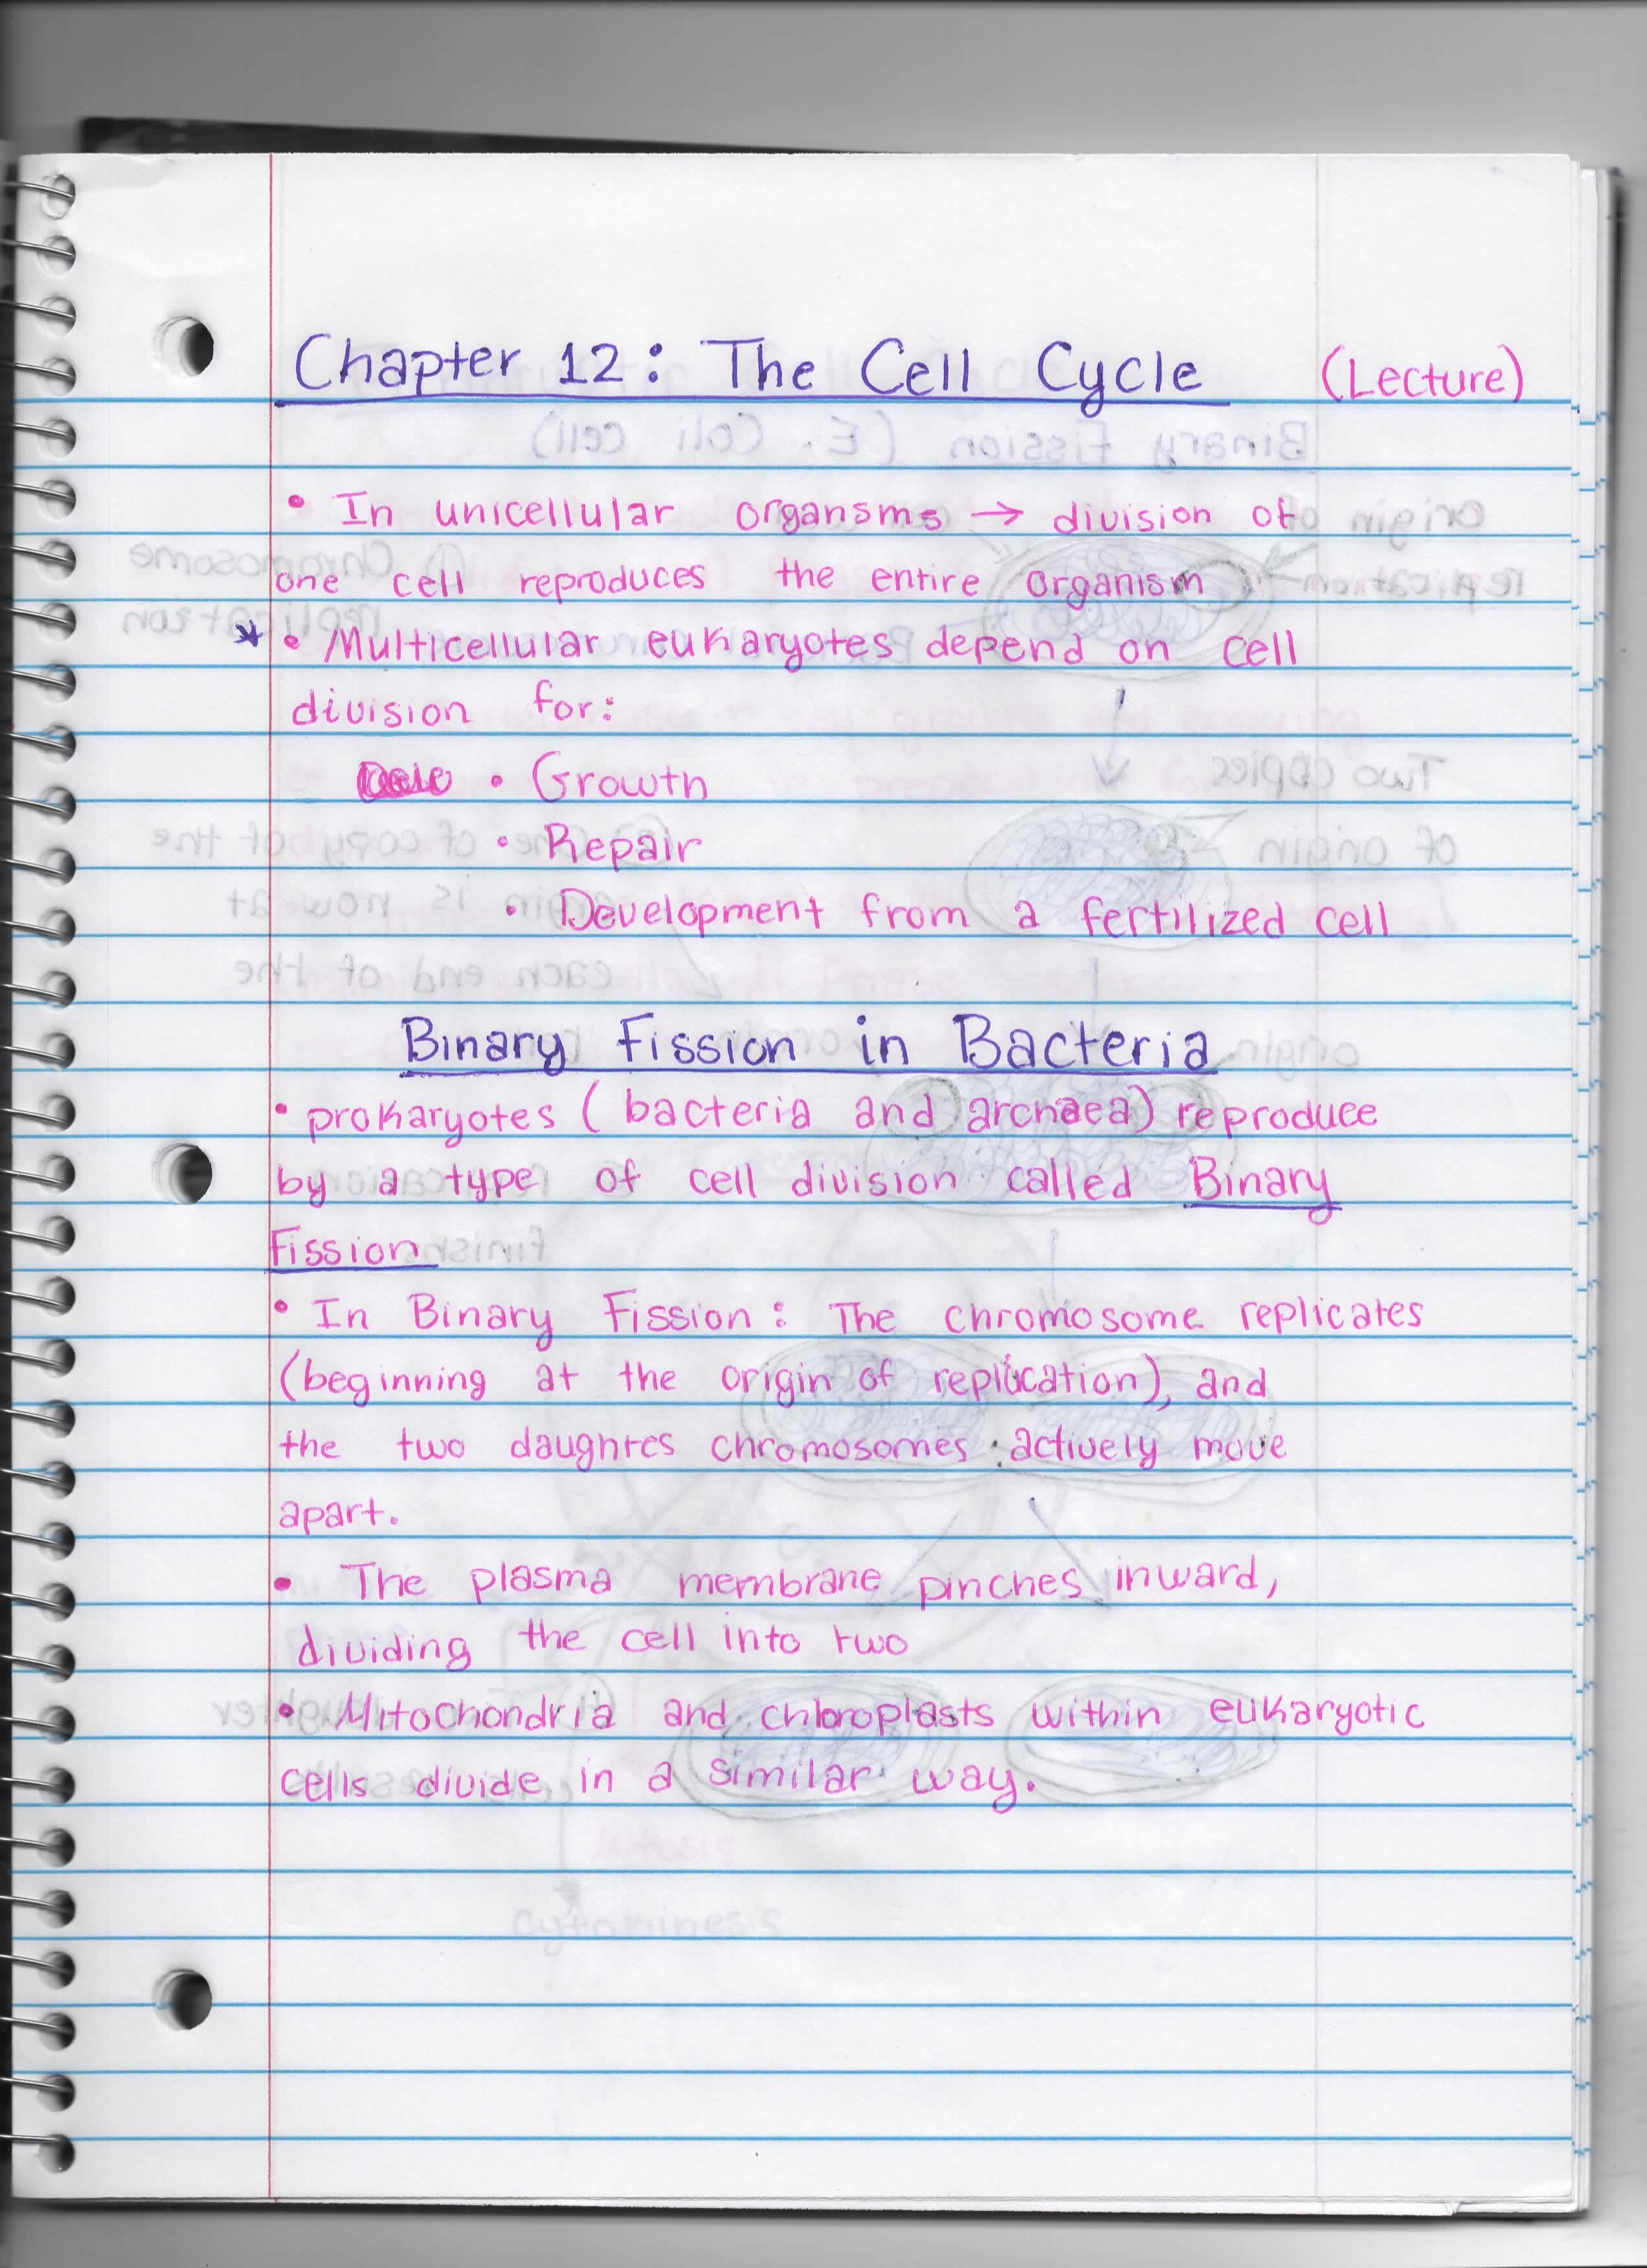 Chapter 12: The Cell Cycle (Lecture)
• In unicellular organsms → division of
one cell reproduces the entire organism
* • Multicellular eukaryotes depend on cell
division for:
• Growth
• Repair
• Development from a fertilized cell
Binary Fission in Bacteria
• prokaryotes (bacteria and archaea) reproduce
by a type of cell division called Binary
Fission
• In Binary Fission: The chromosome replicates
(beginning at the origin of replication), and
the two daughtes chromosomes actively move
apart.
• The plasma membrane pinches inward,
dividing the cell into two
• Mitochondria and chloroplasts within eukaryotic
cells divide in a similar way.